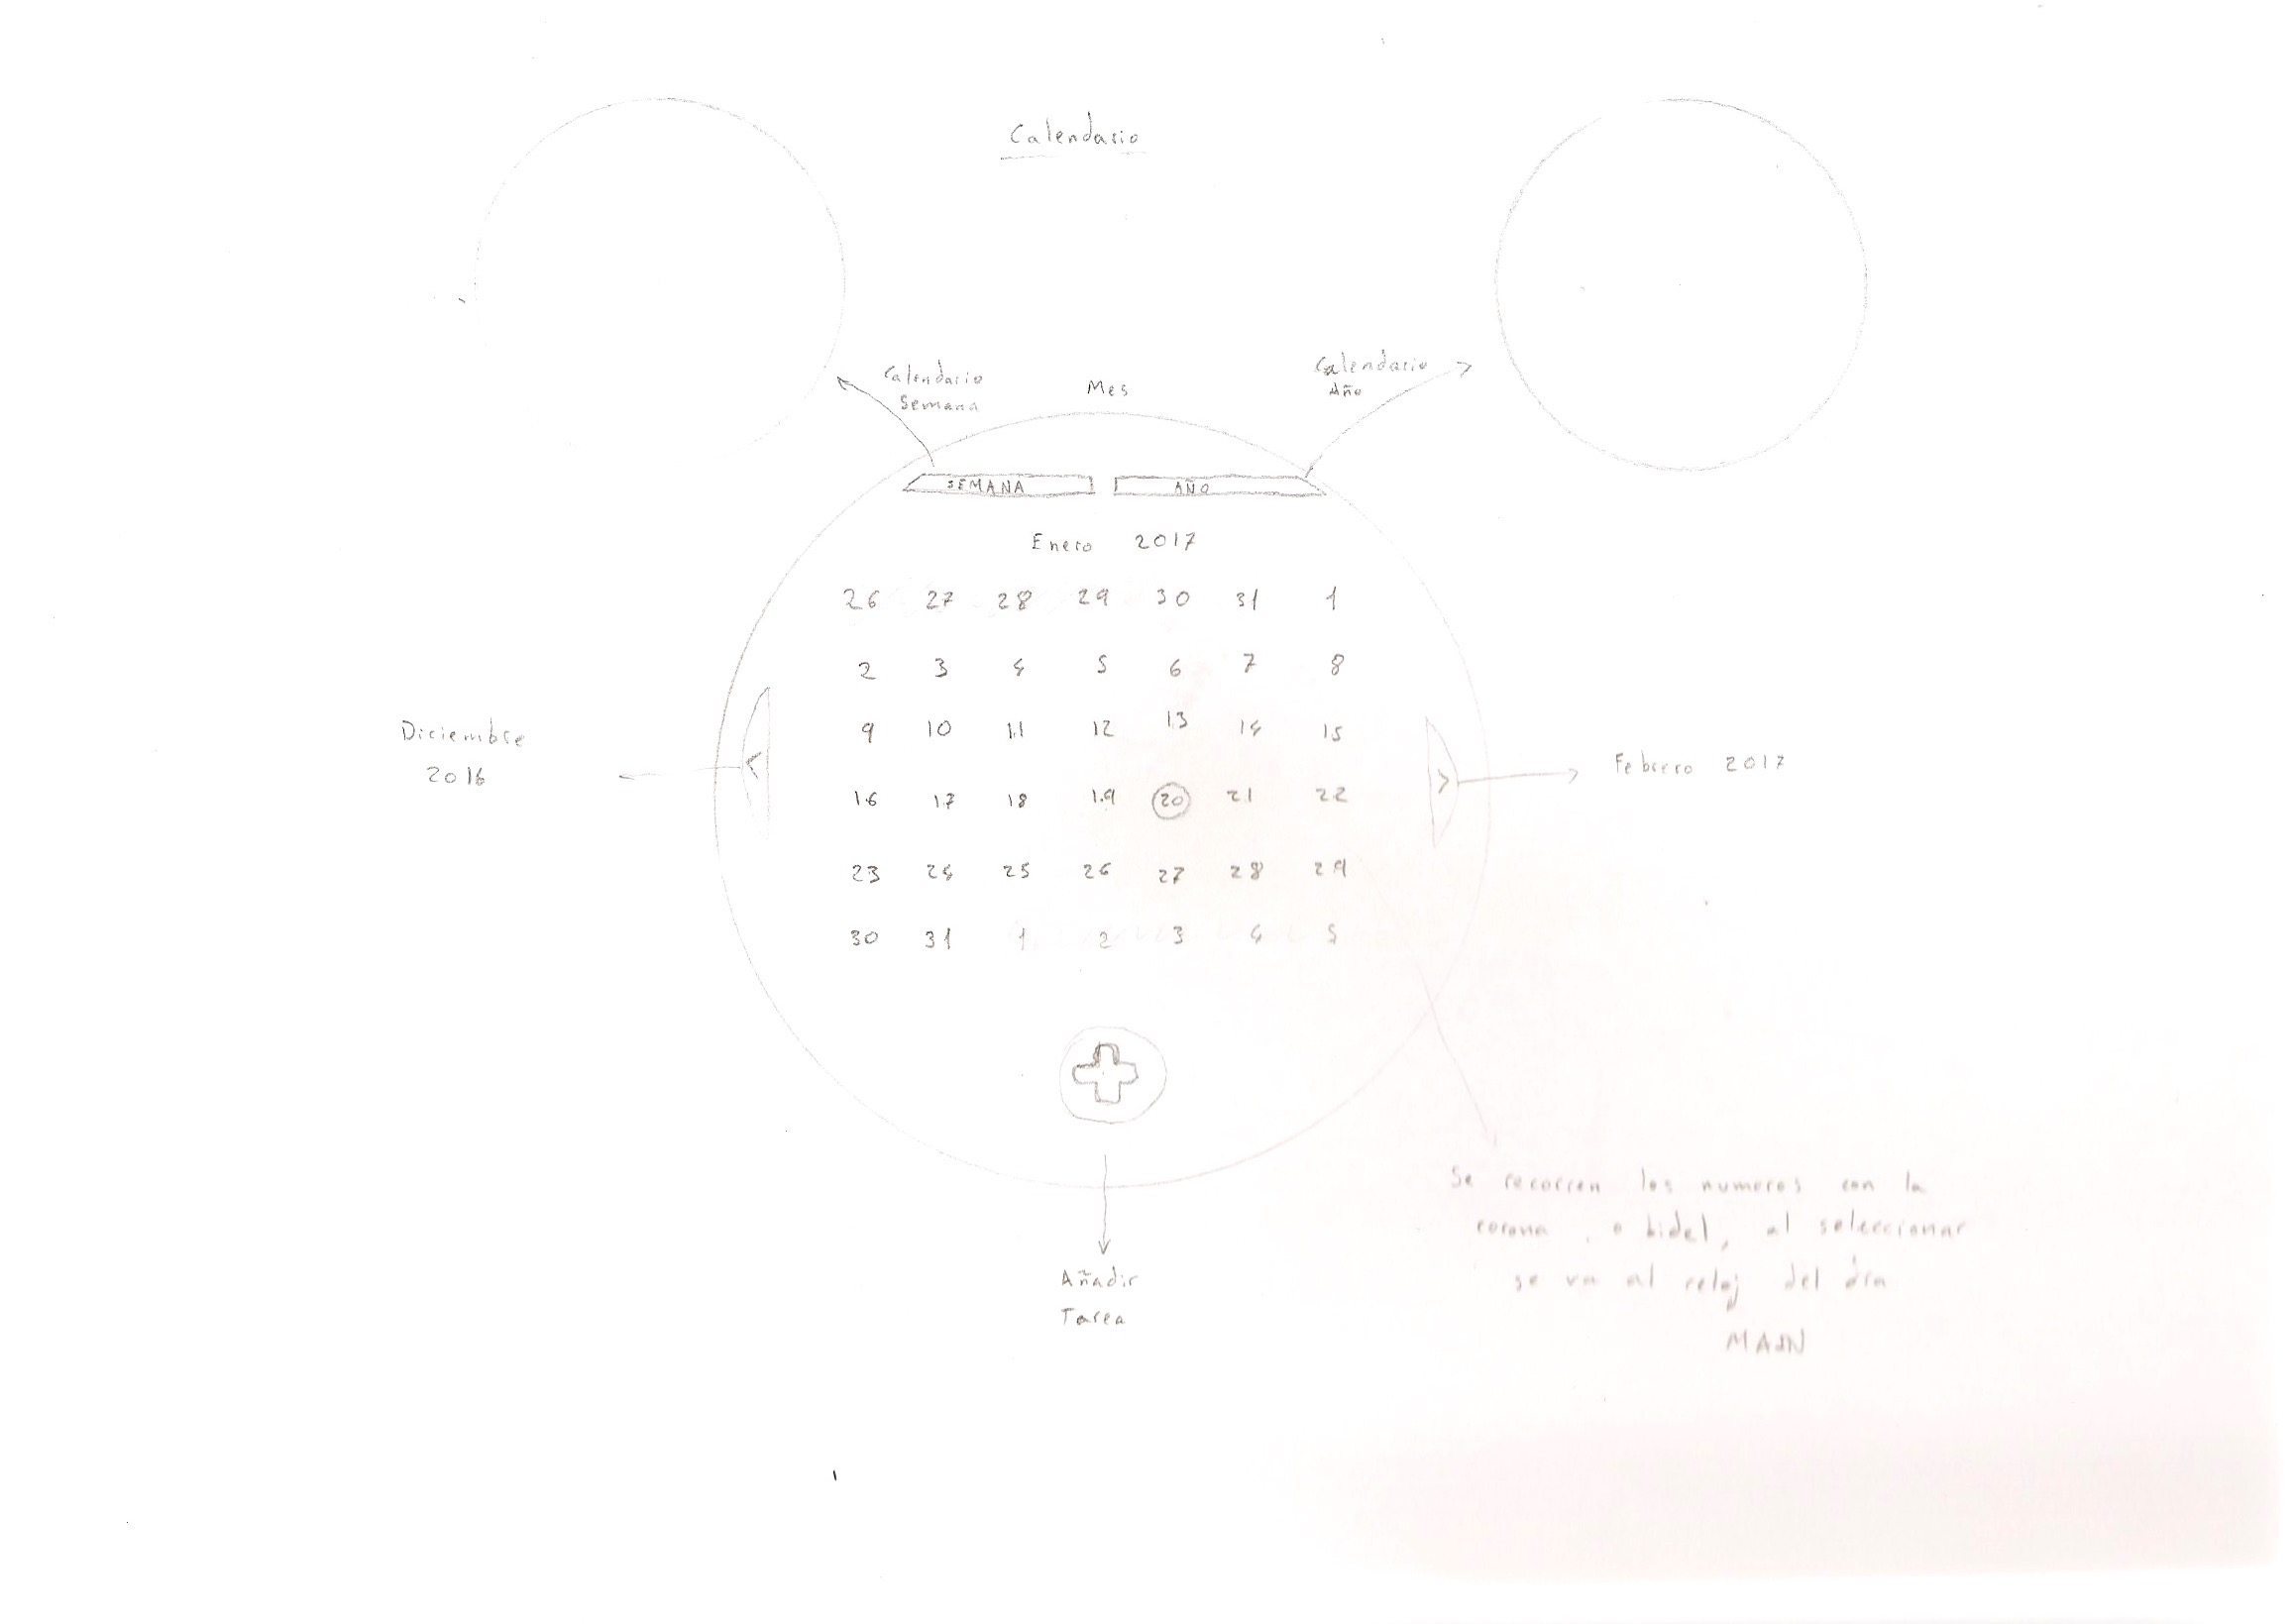 Calendario
Calendario
Semana
Mes
Calendario
Año
SEMANA
AÑO
Enero 2017
26 27 28 29 30 31 1
2 3 4 5 6 7 8
9 10 11 12 13 14 15
16 17 18 19 20 21 22
23 24 25 26 27 28 29
30 31 1 2 3 4 5
<
Diciembre
2016
>
Febrero 2017
Añadir
Tarea
Se recorren los numeros con la
corona, o bidel, al seleccionar
se va al reloj del día
MAIN